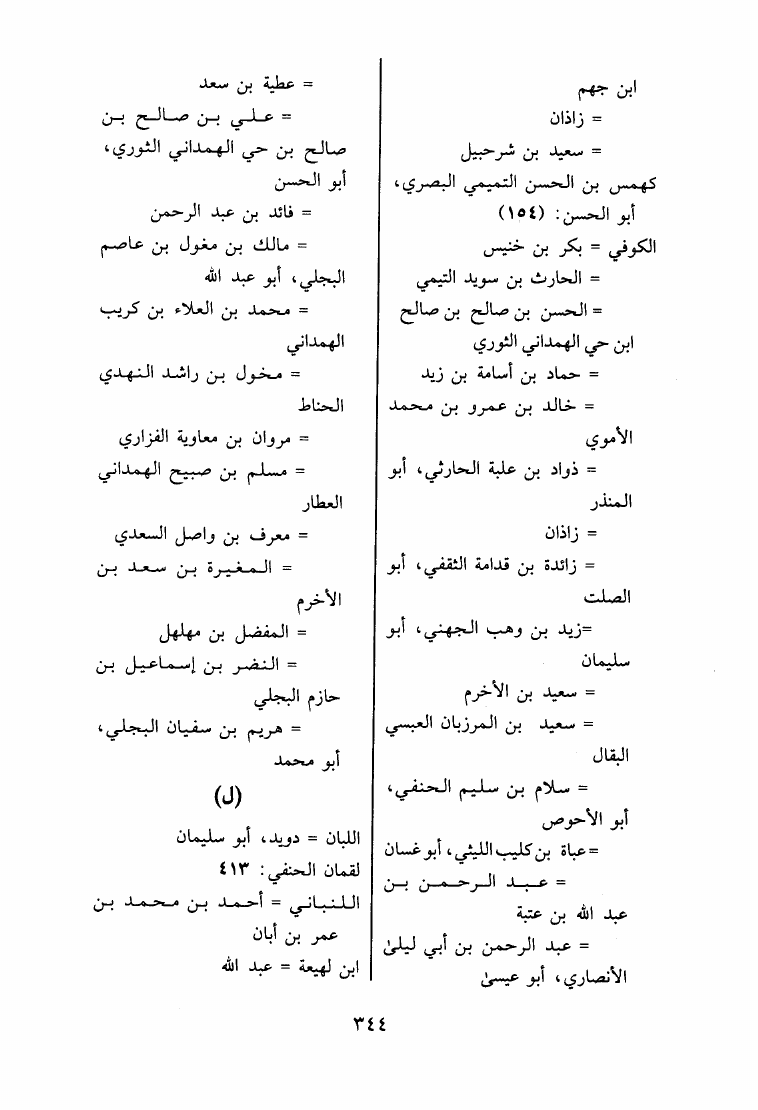 ابن جهم
= زاذان
= سعيد بن شرحبيل
كهمس بن الحسن التميمي البصري،
أبو الحسن: (١٥٤)
الكوفي = بكر بن خنيس
= الحارث بن سويد التيمي
= الحسن بن صالح بن صالح
ابن حي الهمداني الثوري
= حماد بن أسامة بن زيد
= خالد بن عمرو بن محمد
الأموي
= ذواد بن علبة الحارثي، أبو
المنذر
= زاذان
= زائدة بن قدامة الثقفي، أبو
الصلت
=زيد بن وهب الجهني، أبو
سليمان
= سعيد بن الأخرم
= سعيد بن المرزبان العبسي
البقال
= سلام بن سليم الحنفي،
أبو الأحوص
=عباة بن كليب الليثي، أبو غسان
= عبد الرحمن بن
عبد الله بن عتبة
= عبد الرحمن بن أبي ليلىٰ
الأنصاري، أبو عيسىٰ
= عطية بن سعد
= علي بن صالح بن
صالح بن حي الهمداني الثوري،
أبو الحسن
= فائد بن عبد الرحمن
= مالك بن مغول بن عاصم
البجلي، أبو عبد الله
= محمد بن العلاء بن كريب
الهمداني
= مخول بن راشد النهدي
الحناط
= مروان بن معاوية الفزاري
= مسلم بن صبيح الهمداني
العطار
= معرف بن واصل السعدي
= المغيرة بن سعد بن
الأخرم
= المفضل بن مهلهل
= النضر بن إسماعيل بن
حازم البجلي
= هريم بن سفيان البجلي،
أبو محمد
(ل)
اللبان = دويد، أبو سليمان
لقمان الحنفي: ٤١٣
اللنباني = أحمد بن محمد بن
عمر بن أبان
ابن لهيعة = عبد الله
٣٤٤